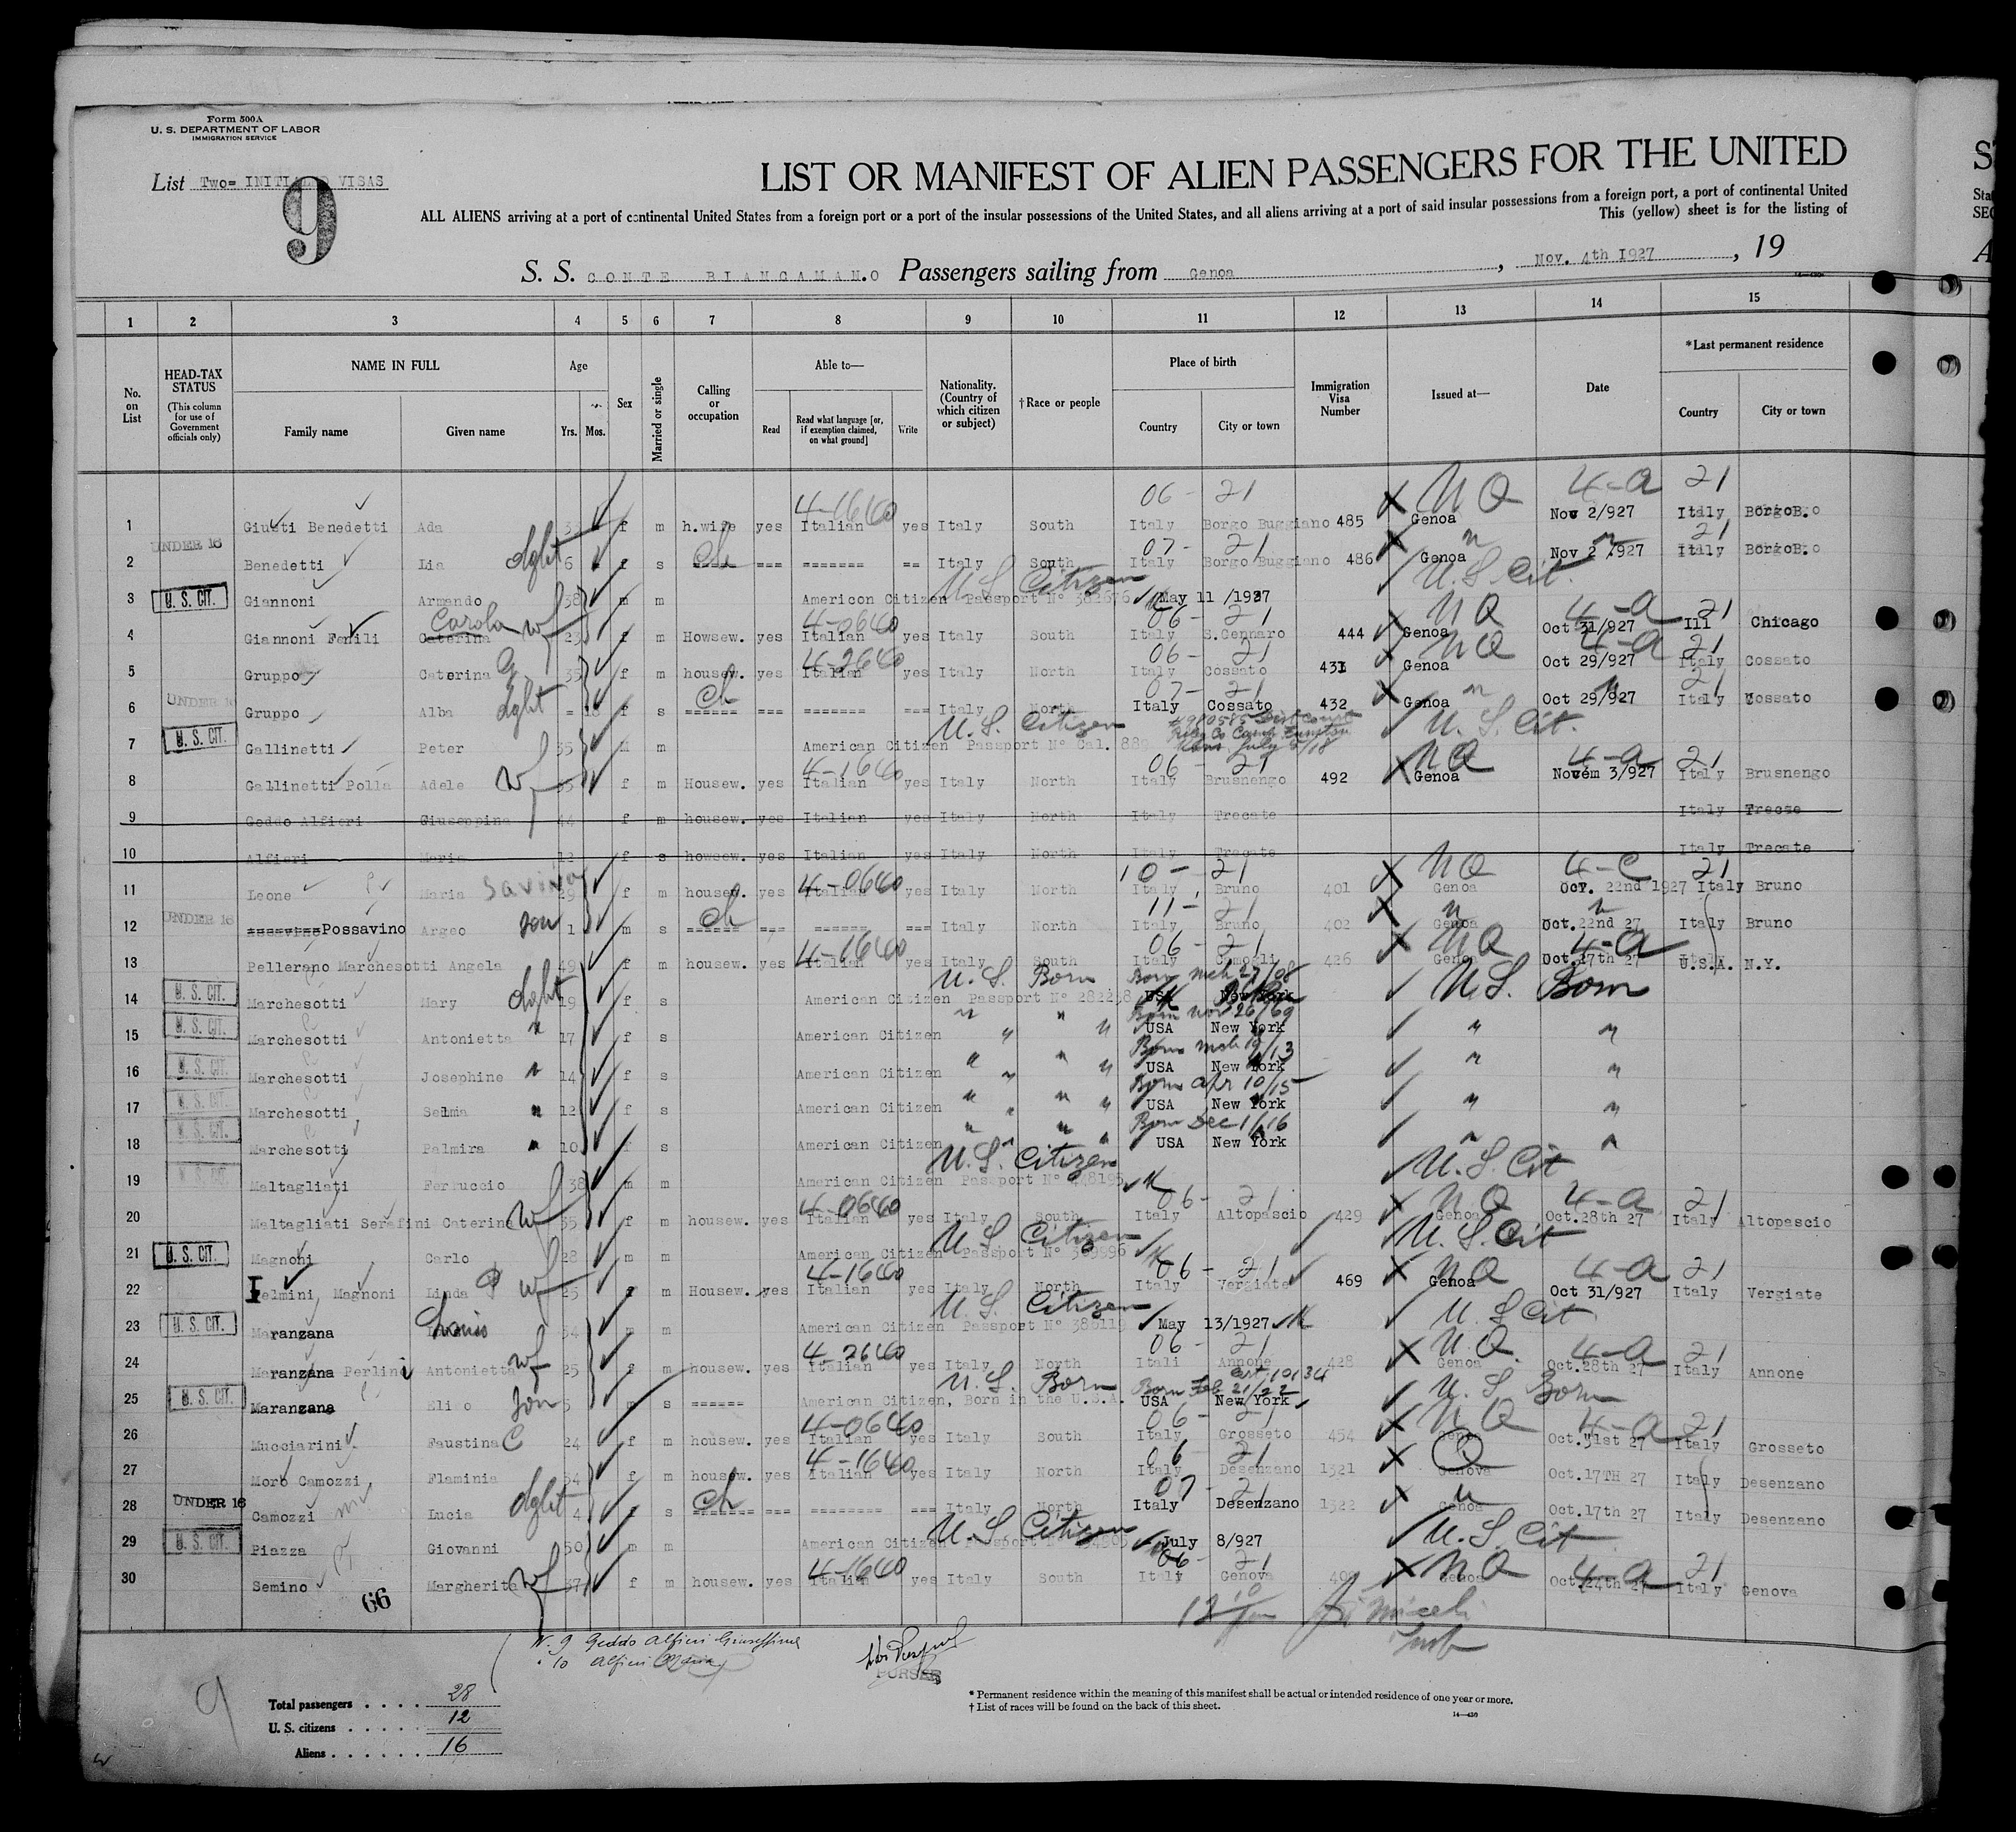 Form 500A
U. S. DEPARTMENT OF LABOR
IMMIGRATION SERVICE
List Two= INITIAL VISAS
9
LIST OR MANIFEST OF ALIEN PASSENGERS FOR THE UNITED
ALL ALIENS arriving at a port of continental United States from a foreign port or a port of the insular possessions of the United States, and all aliens arriving at a port of said insular possessions from a foreign port, a port of continental United
This (yellow) sheet is for the listing of
S. S. CONTE BIANCAMANO Passengers sailing from Genoa, Nov. 4th 1927, 19
1 2 3 4 5 6 7 8 9 10 11 12 13 14 15
No. on List
HEAD-TAX STATUS (This column for use of Government officials only)
NAME IN FULL Family name Given name
Age Yrs. Mos.
Sex
Married or single
Calling or occupation
Able to— Read Read what language [or, if exemption claimed, on what ground] Write
Nationality. (Country of which citizen or subject)
†Race or people
Place of birth Country City or town
Immigration Visa Number
Issued at—
Date
*Last permanent residence Country City or town
4-1640 06 - 21 NQ 4-a 21
1 Giusti Benedetti Ada f m h.wife yes Italian yes Italy South Italy Borgo Buggiano 485 Genoa Nov 2/927 Italy BorgoB.
UNDER 16 dght ch 07 - 21 " " 21
2 Benedetti Lia 6 f s ---- --- ------- -- Italy South Italy Borgo Buggiano 486 Genoa Nov 2 /927 Italy BorgoB.
U. S. Citizen U. S. Cit.
3 U. S. CIT. Giannoni Armando 38 m m American Citizen Passport N° 382676 May 11 /1927
Carola wf 4-0640 06 - 21 NQ 4-a 21
4 Giannoni Fenili Caterina 29 f m Howsew. yes Italian yes Italy South Italy S.Gennaro 444 Genoa Oct 31/927 Ill Chicago
4-2640 06 - 21 NQ 4-a 21
5 Gruppo Caterina G 35 f m housew. yes Italian yes Italy North Italy Cossato 431 Genoa Oct 29/927 Italy Cossato
UNDER 16 dght ch 07 - 21 " " 21
6 Gruppo Alba - 18 f s ------ --- ------- --- Italy North Italy Cossato 432 Genoa Oct 29/927 Italy Cossato
U. S. Citizen U. S. Cit.
7 U. S. CIT. Gallinetti Peter 35 m m American Citizen Passport N° Cal. 889 July 5/18
wf 4-1640 06 - 21 NQ 4-a 21
8 Gallinetti Polla Adele 35 f m Housew. yes Italian yes Italy North Italy Brusnengo 492 Genoa Novem 3/927 Italy Brusnengo
9 Geddo Alfieri Giuseppina 44 f m housew. yes Italian yes Italy North Italy Trecate Italy
10 Alfieri Maria 12 f s howsew. yes Italian yes Italy North Italy Trecate Italy Trecate
Savina 4-0640 10 - 21 NQ 4-c 21
11 Leone Maria 29 f m housew. yes Italian yes Italy North Italy Bruno 401 Genoa Oct. 22nd 1927 Italy Bruno
UNDER 16 son ch 11 - 21 " "
12 Possavino Argeo 1 m s ------ --- ------ --- Italy North Italy Bruno 402 Genoa Oct.22nd 27 Italy Bruno
4-1640 06 - 21 NQ 4-a
13 Pellerano Marchesotti Angela 49 f m housew. yes Italian yes Italy South Italy Camogli 426 Genoa Oct.17th 27 U.S.A. N.Y.
U. S. Born Born mch 27/08 U. S. Born
14 U. S. CIT. Marchesotti Mary dght 19 f s American Citizen Passport N° 282238 USA New York
" " Born Nov 26/09
15 U. S. CIT. Marchesotti Antonietta " 17 f s American Citizen " " USA New York " "
" " Born mch 19/13
16 U. S. CIT. Marchesotti Josephine " 14 f s American Citizen " " USA New York " "
" " Born apr 10/15
17 U. S. CIT. Marchesotti Selmia " 12 f s American Citizen " " USA New York " "
" " Born Dec 1/16
18 U. S. CIT. Marchesotti Palmira " 10 f s American Citizen " " USA New York " "
U. S. Citizen U. S. Cit
19 U. S. CIT. Maltagliati Ferruccio 38 m m American Citizen Passport N° 448195
wf 4-0640 06 - 21 NQ 4-a 21
20 Maltagliati Serafini Caterina 35 f m housew. yes Italian yes Italy South Italy Altopascio 429 Genoa Oct.28th 27 Italy Altopascio
U. S. Citizen U. S. Cit
21 U. S. CIT. Magnoni Carlo 28 m m American Citizen Passport N° 389996
wf 4-1640 06 - 21 NQ 4-a 21
22 Ielmini, Magnoni Linda 25 f m Housew. yes Italian yes Italy North Italy Vergiate 469 Genoa Oct 31/927 Italy Vergiate
U. S. Citizen U. S Cit
23 U. S. CIT. Maranzana Louis 34 m m American Citizen Passport N° 386119 May 13/1927
wf 4-2640 06 - 21 NQ. 4-a 21
24 Maranzana Perlini Antonietta 25 f m housew. yes Italian yes Italy North Itali Annone 428 Genoa Oct.28th 27 Italy Annone
U. S. Born Born Feb 21/22 U. S Born
25 U. S. CIT. Maranzana son 5 m s ------ American Citizen, Born in the U.S.A. USA New York
4-0640 06 - 21 NQ 4-a 21
26 Mucciarini Faustina C 24 f m housew. yes Italian yes Italy South Italy Grosseto 454 Genoa Oct.31st 27 Italy Grosseto
4-1640 06 21 Q
27 Moro Camozzi Flaminia 34 f m housew. yes Italian yes Italy North Italy Desenzano 1321 Genova Oct.17TH 27 Italy Desenzano
dght ch 07 - 21 "
28 UNDER 16 Camozzi Lucia 4 f s ------- --- -------- --- Italy North Italy Desenzano 1322 Genoa Oct.17th 27 Italy Desenzano
U. S Citizen U. S. Cit
29 U. S. CIT. Piazza Giovanni 50 m m American Citizen Passport N° July 8/927
wf 4-1640 06 - 21 NQ 4-a 21
30 Semino Margherita 37 f m housew. yes Italian yes Italy South Italy Genova Genoa Oct.24th 27 Italy Genova
66
N. 9 Geddo Alfieri Giuseppina
" 10 Alfieri Maria
PURSER
9
Total passengers . . . . 28
U. S. citizens . . . . . 12
Aliens . . . . . . 16
* Permanent residence within the meaning of this manifest shall be actual or intended residence of one year or more.
† List of races will be found on the back of this sheet.
14—430